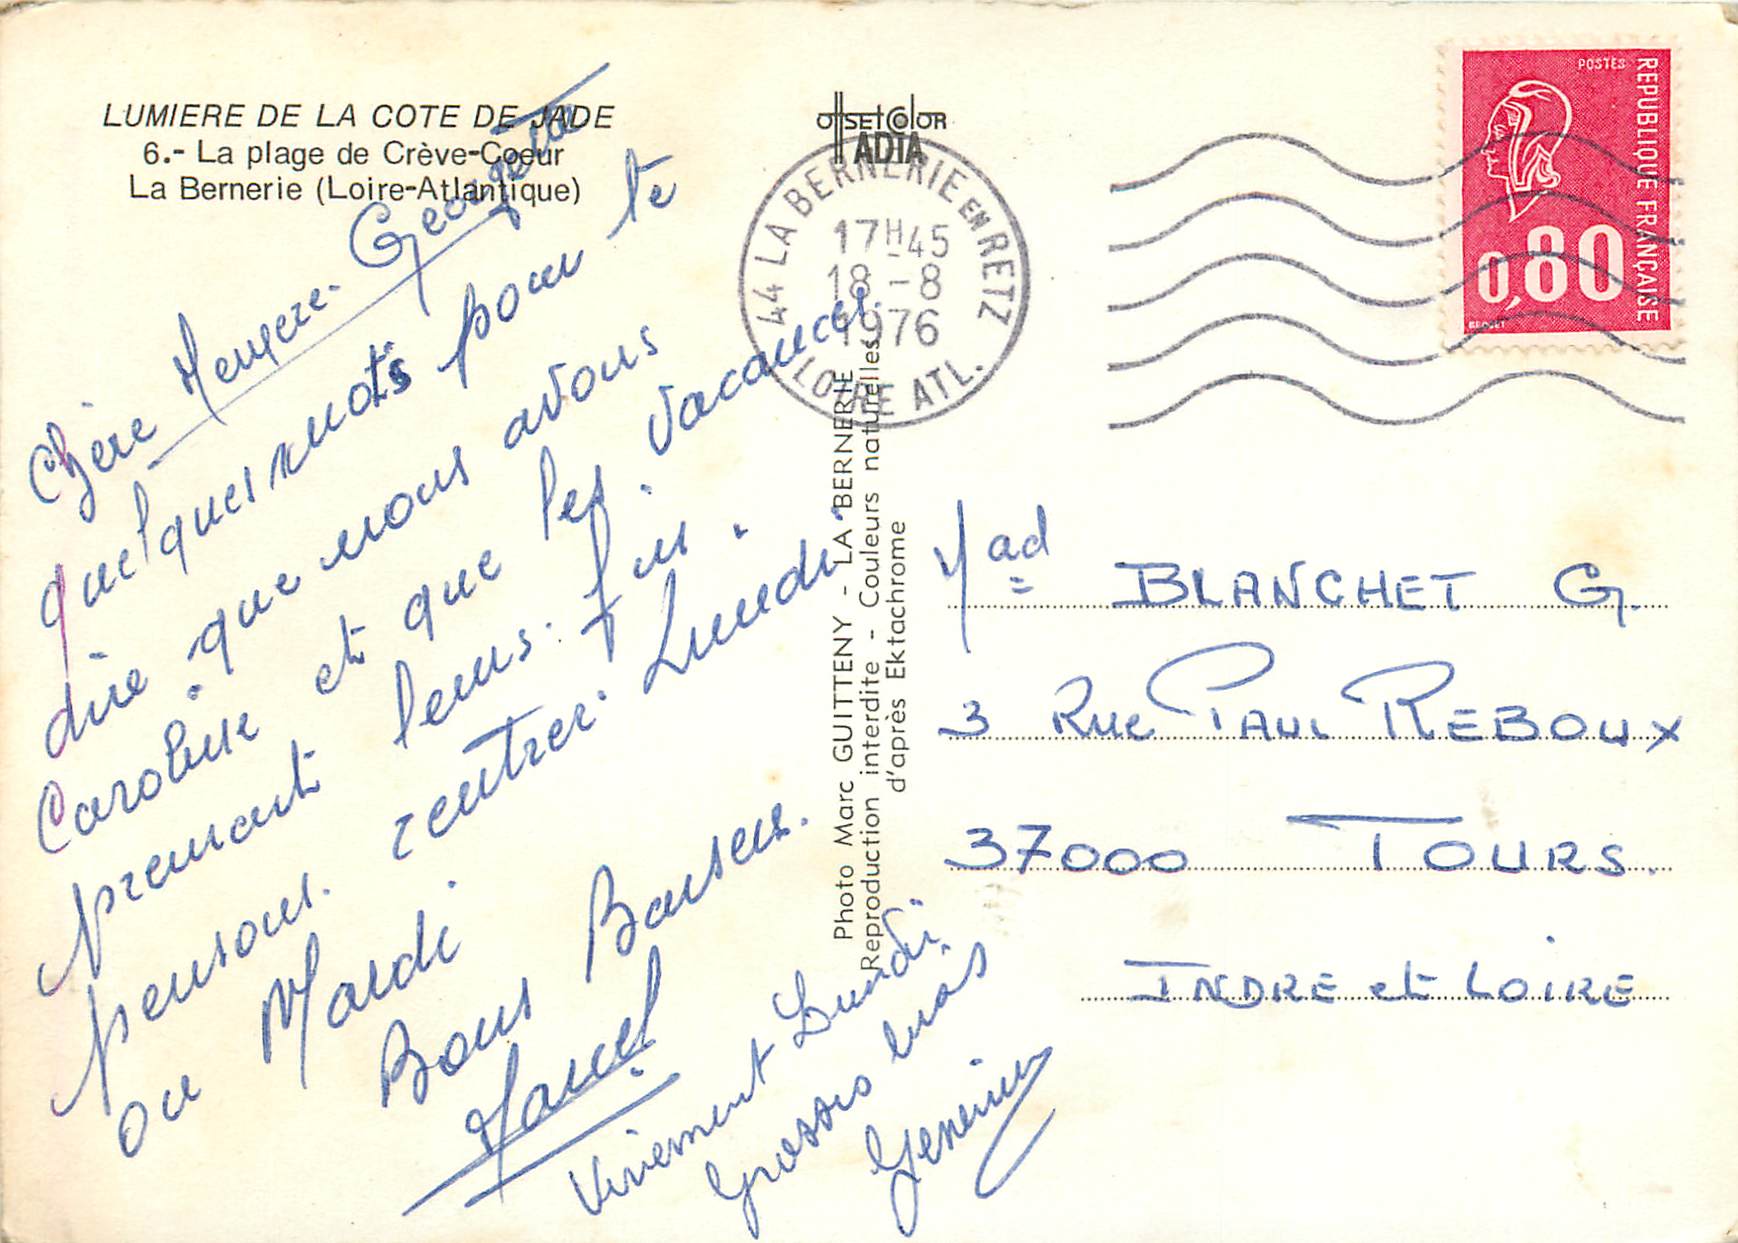 LUMIERE DE LA COTE DE JADE
6.- La plage de Crève-Coeur
La Bernerie (Loire-Atlantique)
Chère Georgette
quelques mots pour te
dire que nous avons
et que les vacances
prennent leurs fin.
pensons rentrer Lundi
ou Mardi
Bons Baisers.
Marcel
Vivement Lundi
Grosses bises
offset color
ADIA
44 LA BERNERIE EN RETZ
17H45
18 -8
1976
LOIRE ATL.
Photo Marc GUITTENY - LA BERNERIE
Reproduction interdite - Couleurs naturelles
d'après Ektachrome
POSTES
REPUBLIQUE FRANÇAISE
0,80
BEQUET
Mad BLANCHET G.
3 Rue PAUL REBOUX
37000 TOURS.
INDRE et LOIRE